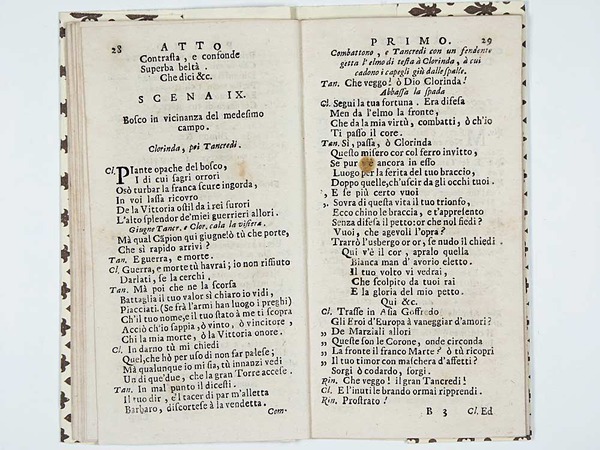 28 ATTO
Contrasta, e confonde
Superba beltà.
Che dici &c.
SCENA IX.
Bosco in vicinanza del medesimo
campo.
Clorinda, poi Tancredi.
Cl. PIante opache del bosco,
I di cui sagri orrori
Osò turbar la franca scure ingorda,
In voi lassa ricovro
De la Vittoria ostil da i rei furori
L'alto splendor de' miei guerrieri allori.
Giugne Tancr. e Clor. cala la visiera.
Mà qual Cāpion qui giugne! ò tù che porte,
Che sì rapido arrivi?
Tan. E guerra, e morte.
Cl. Guerra, e morte tù havrai; io non rifiuto
Darlati, se la cerchi.
Tan. Mà poi che ne la scorsa
Battaglia il tuo valor sì chiaro io vidi,
Piacciati. (Se frà l'armi han luogo i preghi)
Ch'il tuo nome, e il tuo stato à me ti scopra
Acciò ch'io sappia, ò vinto, ò vincitore,
Chi la mia morte, ò la Vittoria onore.
Cl. In darno tù mi chiedi
Quel, che hò per uso di non far palese;
Mà qualunque io mi sia, tù innanzi vedi
Un di que' due, che la gran Torre accese.
Tan. In mal punto il dicesti.
Il tuo dir, e'l tacer di par m'alletta
Barbaro, discortese à la vendetta.
Com-
PRIMO. 29
Combattono, e Tancredi con un fendente
getta l'elmo di testa à Clorinda, à cui
cadono i capegli giù dalle spalle.
Tan. Che veggo! ò Dio Clorinda!
Abbassa la spada
Cl. Segui la tua fortuna. Era difesa
Men da l'elmo la fronte,
Che da la mia virtù, combatti, ò ch'io
Ti passo il core.
Tan. Sì, passa, ò Clorinda
Questo misero cor col ferro invitto,
Se pur v'è ancora in esso
Luogo per la ferita del tuo braccio,
Doppo quelle, ch'uscir da gli occhi tuoi.
, E se più certo vuoi
,. Sovra di questa vita il tuo trionfo,
Ecco chino le braccia, e t'appresento
Senza difesa il petto: or che nol fiedi?
Vuoi, che agevoli l'opra?
Trarrò l'usbergo or or, se nudo il chiedi.
Qui v'è il cor, apralo quella
Bianca man d'avorio eletto.
Il tuo volto vi vedrai,
Che scolpito da tuoi rai
E la gloria del mio petto.
Qui &c.
Cl. Trasse in Asia Goffredo
Gli Eroi d'Europa à vaneggiar d'amori?
„ De Marziali allori
„ Queste son le Corone, onde circonda
„ La fronte il franco Marte? ò tù ricopri
„ Il tuo timor con maschera d'affetti?
Sorgi ò codardo, sorgi.
Rin. Che veggo! il gran Tancredi!
Cl. E l'inutile brando ormai riprendi.
Rin. Prostrato!
B 3 Cl. Ed